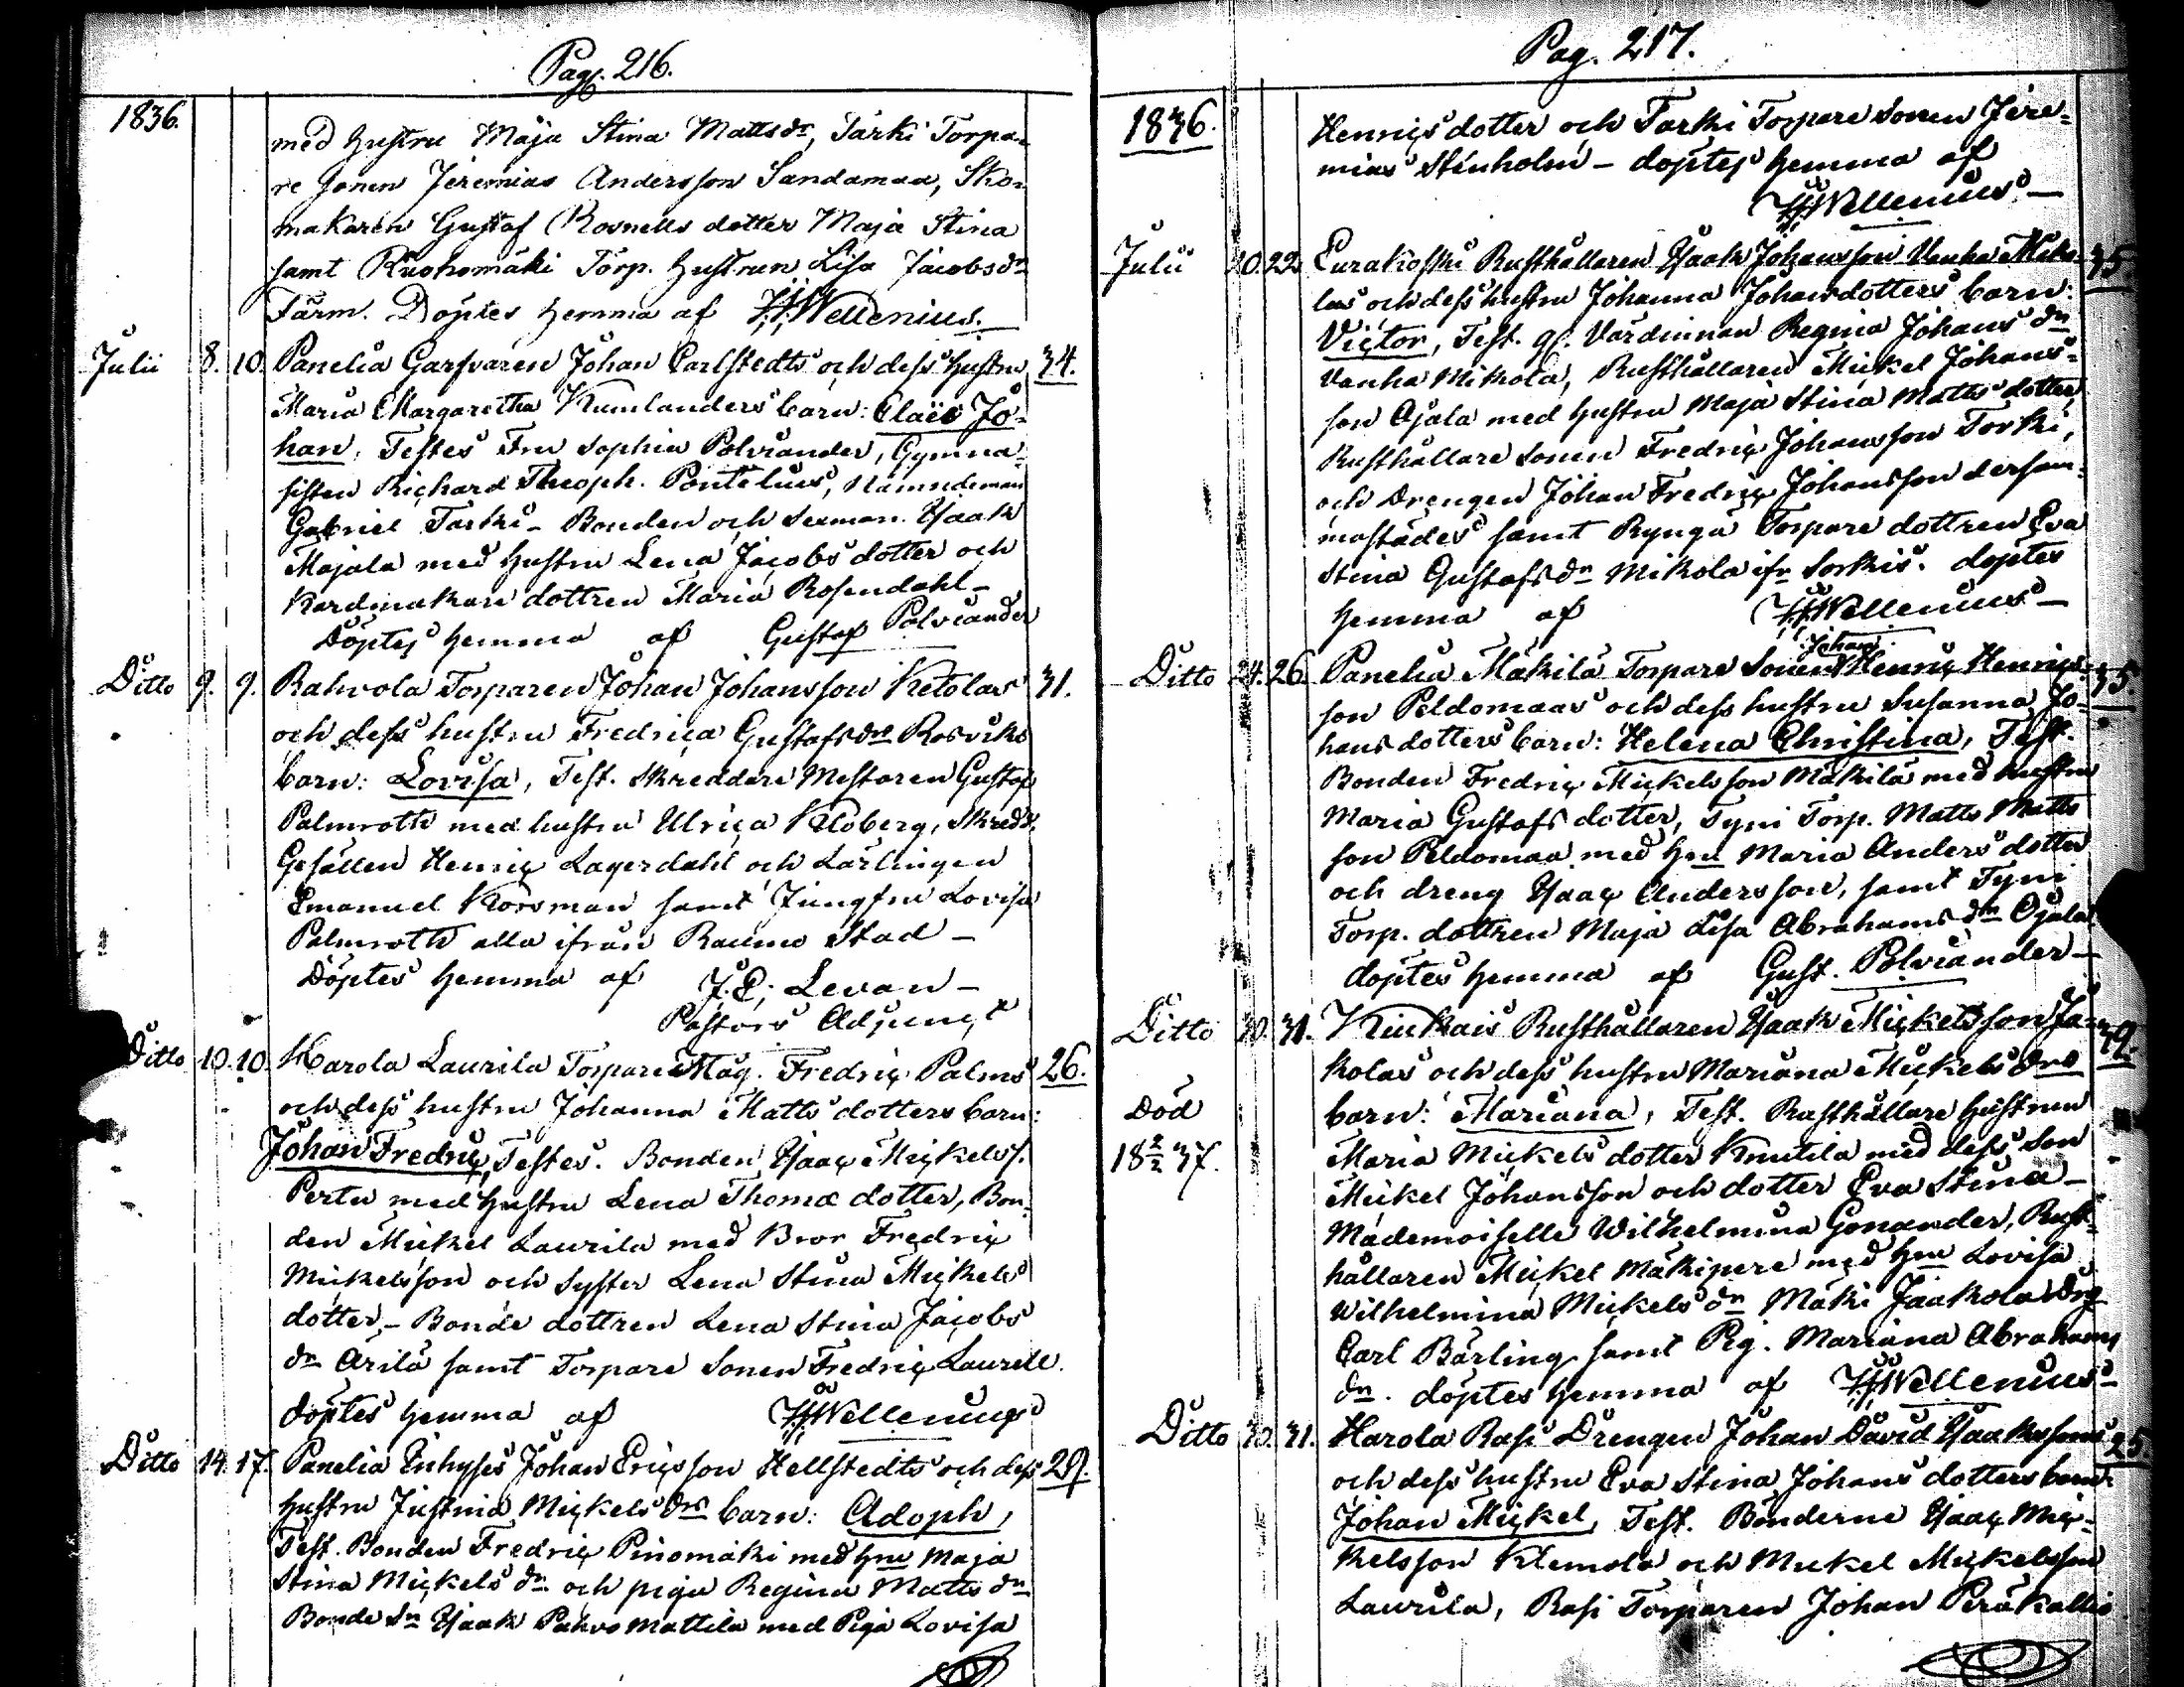 Pag. 216.
1836.
med hustru Maja Stina Mattsdr, Tarki Torpa-
re Sonen Jeremias Andersson Sandamaa, Sko-
makaren Gustaf Rosnells dotter Maja Stina
samt Ruohomäki Torp. hustrun Lisa Jacobsdr
Färm. Döptes hemma af Wellenius.
Julii 8. 10. Panelia Garfvaren Johan Carlstedts och dess hustru 34.
Maria Margaretha Kumlanders barn: Claës Jo-
han, Testes Fru Sophia Polviander, Gymna-
sisten Richard Theoph. Pontelius, Nämndeman
Gabriel Tarki - Bonden och Sexman Isaak
Majala med hustru Lena Jacobs dotter och
Kardmakare dottren Maria Rosendahl -
Döptes hemma af Gustaf Polviander
Ditto 9. 9. Rahvola Torparen Johan Johansson Ketolas 31.
och dess hustru Fredrica Gustafsdrs Rosviks
barn: Lovisa, Test. Skreddare Mestaren Gustaf
Palmroth med hustru Ulrica Kloberg, Skredd.
Gesällen Henric Lagerdahl och Lärlingen
Emanuel Korsman samt Jungfru Lovisa
Palmroth alla ifrån Raumo Stad -
Döptes hemma af J. E. Levan -
Pastors Adjunct
Ditto 10. 10. Harola Laurila Torpare Mag. Fredric Palms 26.
och dess hustru Johanna Matts dotters barn:
Johan Fredric, Testes. Bonden Isaac Mickels s.
Pertu med hustru Lena Thomæ dotter, Bon-
den Mickel Laurila med Bror Fredric
Mickelsson och Syster Lena Stina Mickels
dotter, - Bonde dottren Lena Stina Jacobs
dr Arilä samt Torpare Sonen Fredric Laurell.
döptes hemma af Wellenius
Ditto 14. 17. Panelia Inhyses Johan Ericsson Hellstedts och dess 29.
hustru Justina Mickels drs barn: Adoph,
Test. Bonden Fredric Pinomäki med hru Maja
Stina Mickels dr och piga Regina Matts dr
Bonde Sn Isaak Pahvo Mattila med Piga Lovisa
Pag. 217.
1836.
Henrics dotter och Tarki Torpare Sonen Jere-
mias Stenholm - döptes hemma af
Wellenius -
Julii 20. 22. Eurakoski Rusthållaren Isaak Johansson Vanha Miko- 35.
las och dess hustru Johanna Johansdotters barn:
Victor, Test. gl. Värdinnan Regina Johans dr
Vanha Mikola, Rusthållaren Mickel Johans-
son Ojala med hustru Maja Stina Matts dotter
Rusthållare Sonen Fredric Johansson Torki,
och Drengen Johan Fredric Johansson dersam-
mastädes samt Rynga Torpare dottren Eva
Stina Gustafsdr Mikola ifr Sorkis. döptes
hemma af Wellenius -
Johan
Ditto 24. 26. Panelia Mäkilä Torpare Sonen Henric Henrics- 35.
son Peldomaas och dess hustru Susanna Jo-
hans dotters barn: Helena Christina, Test.
Bonden Fredric Mickelsson Mäkilä med hustru
Maria Gustafs dotter, Tyni Torp. Matts Matts
son Peldomaa med hru Maria Anders dotter
och dreng Isaac Andersson, samt Tyni
Torp. dottren Maja Lisa Abrahams dr Ojala
döptes hemma af Gust. Polviander -
Ditto 30. 31. Kiukais Rusthållaren Isaak Mickelsson Ja- 39.
kolas och dess hustru Mariana Mickels drs
Död
18 2/2 37.
barn: Mariana, Test. Rusthållare hustrun
Maria Mickels dotter Knutila med dess Son
Mickel Johansson och dotter Eva Stina -
Mademoiselle Wilhelmina Gonander, Rust-
hållaren Mickel Mäkipere med hru Lovisa
Wilhelmina Mickels dr Mäki Jaakola Drg
Carl Bärling samt Pig. Mariana Abrahams
dr. döptes hemma af Wellenius
Ditto 30. 31. Harola Rasi Drengen Johan David Isaakssons 25.
och dess hustru Eva Stina Johans dotters barn
Johan Mickel, Test. Bönderne Isaac Mic-
kelsson Klemola och Mickel Mickelsson
Laurila, Rasi Torparen Johan Peräkallio